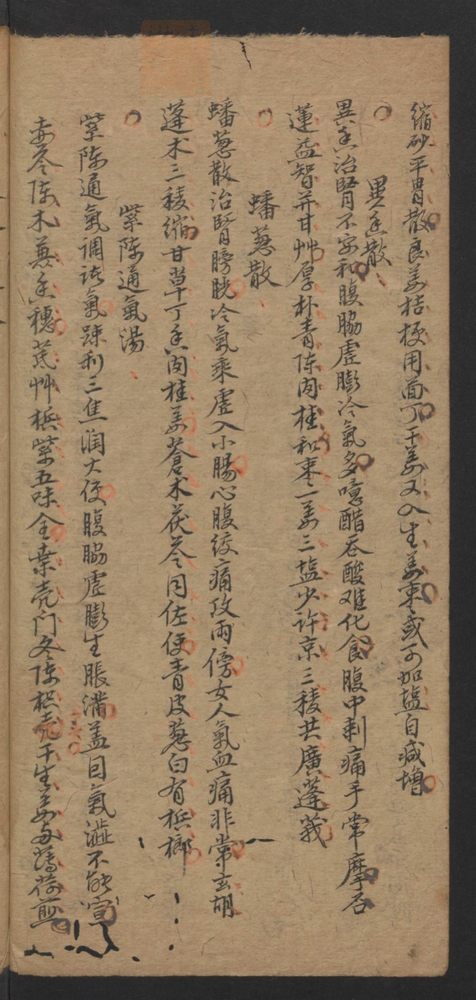 缩砂平胃散良姜桔梗用茴丁干姜又入生姜枣或可加盐自减增
異香散
異香治腎不安和腹脇虚膨冷氣多噫醋吞酸难化食腹中刺痛手常摩石
蓮益智并甘艸厚朴青陈肉桂和枣一姜三盐少許京三稜共廣蓬莪
蟠葱散
蟠葱散治腎膀胱冷氣乘虚入小腸心腹绞痛攻兩傍女人氣血痛非常玄胡
蓬术三稜缩甘草丁香肉桂姜蒼术茯苓同佐使青皮葱白有梹榔
紫陈通氣湯
紫陈通氣调诸氣踈利三焦润大便腹脇虚膨生脹满盖因氣澁不能宣
赤苓陈木兼香穗芎艸梹紫五味全桑壳门冬陈枳壳干生姜薄荷煎